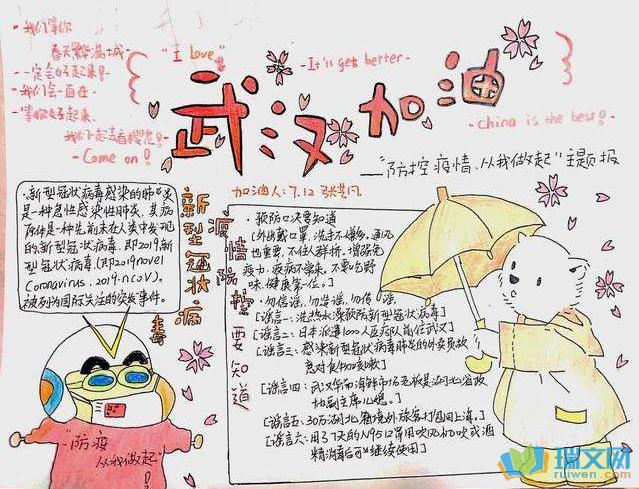 -我们等你
春天繁华满城-
-一定会好起来!-
-我们会一直在-
-掌Come on!
"I love"
武汉加油
-It'll get better-
-China is the best!-
"防控疫情,从我做起"主题报
加油人:7.12
新型冠状病毒
·新型冠状病毒感染的肺炎
是一种急性感染性肺炎,其病
原体是一种先前未在人类中发现
的新型冠状病毒,即2019新
型冠状病毒(即2019novel
Coronavirus,2019-nCoV).
被列为国际关注的突发事件。
疫情防控要知道
·预防口决要知道
[外出戴口罩,洗手不嫌多。通风
也重要,不往人群挤。增强免
疫力,疾病不常来。不要吃野
味,健康第一位。]
·勿信谣,勿造谣,勿传谣
[谣言一:洗热水澡预防新型冠状病毒]
[谣言二:日本派遣1000人医疗队前往武汉]
[谣言三:感染新型冠状病毒肺炎的外卖员故
意对食物咳嗽]
[谣言四:武汉华南海鲜市场老板是湖北省政
协副主席
[谣言五:30万湖北籍境外旅客打包回上海。]
[谣言六:用了7天的N95口罩用吹风机吹或酒
精消毒后可以继续使用]
"防疫
从我做起"!
瑞文网
ruiwen.com